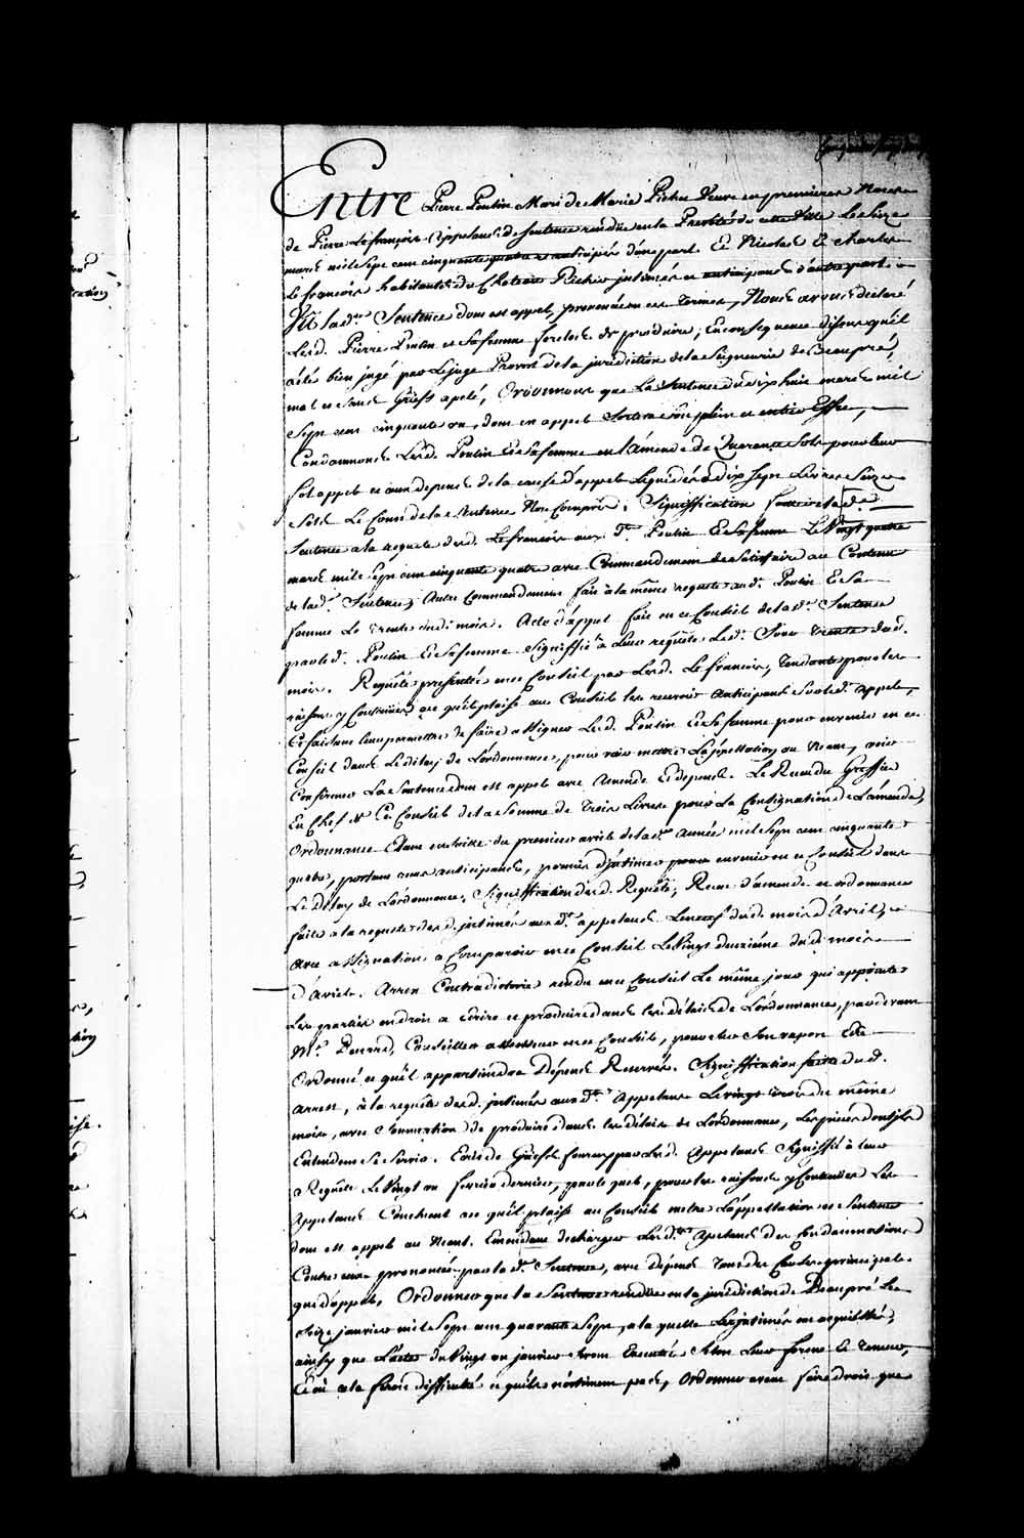 Entre Pierre Poulin Mari de Marie Pichet Veuve en premieres Noces
de Pierre Lefrançois Appelans de Sentence rendue en la Prevôté de cette Ville le Seize
mars mil Sept cent cinquante quatre et anticipés d'une part. Et Nicolas & Charles
Lefrancois habitants du Chateau Richer intimés et anticipans d'autre part.
Vû lad. Sentence dont est appel, prononcée en ces termes, Nous avons declaré
Lesd. Pierre Poulin et Sa femme forclos de produire; En consequence disons qu'il
a été bien jugé par le juge Prevost de la jurisdiction de la Seigneurie de Beaupré,
mal et Sans Griefs apelé, Ordonnons que La Sentence du dix huit mars mil
Sept cent cinquante un, dont en appel Sortira Son plein et entier Effet,
Condamnons Lesd. Poulin Et Sa femme en l'Amende de Quarante Sols pour leur
fol appel et aux depens de la cause d'appel Liquidés a dix Sept Livres Seize
Sols Le Cout de la Sentence Non Compris. Signiffication de lad.
Sentence a la requete desd. Lefrancois aux d. Poulin Et Sa femme Le Vingt quatre
mars mil Sept cent cinquante quatre avec Commandement de Satisfaire au Contenu
de lad. Sentence, Autre Commandement fait à la même requete aud. Poulin Et Sa
femme Le trente dud. mois. Acte d'appel fait en ce Conseil de lad. Sentence
par led. Poulin Et Sa femme Signiffié à Leur requête Led. Jour trente dud.
mois. Requête presentée en ce Conseil par Lesd. Lefrancois, Tendante pour les
raisons y Contenües a ce qu'il plaise au Conseil les recevoir Anticipans Sur led. appel,
Ce faisant leur permettre de faire assigner Lesd. Poulin Et Sa femme pour en venir en ce
Conseil dans Le delay de L'ordonnance, pour voir mettre L'appellation au Neant, voir
Confirmer La Sentence dont est appel avec Amende Et depens. Le Recu du Greffier
En Chef de Ce Conseil de la Somme de Trois Livres pour La Consignation de L'amende,
Ordonnance Etant ensuite du premier avril de la d. année mil Sept cent cinquante
quatre, portant anticipans, permis d'intimer pour en venir en ce Conseil dans
Le Delay de L'ordonnance, Signiffication desd. Requête, Recu d'amende et ordonnance
faite a la requete desd. intimés aux d. appelans Le neuf dud. mois d'Avril,
avec assignation a Comparoir en ce Conseil Le Vingt deuxiéme dud. mois
d'Avril. Arrest Contradictoire rendu en ce Conseil Le même jour qui appointe
Les parties en droit a ecrire et produire dans les délais de L'ordonnance, pardevant
Me. Conseiller assesseur en ce Conseil, pour sur Son raport etre
Ordonné ce qu'il appartiendra Dépens Reservés. Signiffication faite dud.
arrest, à la requête desd. intimés aux d. Appelans Le vingt trois du même
mois, avec Sommation de produire dans les délais de L'ordonnance, Les piéces dont ils
Entendent Se Servir. Ecrit de Griefs fourny par Lesd. Appelans Signiffié à leur
Requête Le Vingt un fevrier dernier, par lequel, pour les raisons y Contenües Les
Appelans Concluent a ce qu'il plaise au Conseil mettre L'appellation et Sentence
dont est appel au Neant. Emendant decharger Lesd. Apelans des Condamnations
Contre eux prononcées par lad. Sentence, avec dépens Tant des Causes principale
que d'appel, Ordonner que la Sentence rendüe en la jurisdiction de Beaupré Le
Seize janvier mil Sept cent quarante Sept, a la quelle Les intimés ont acquiessé,
ainsy que L'acte du Vingt un janvier Seront Executés Selon Leur forme & Teneur,
Et où cela feroit difficulté ce qu'ils n'estiment pas, Ordonner avant faire droit que